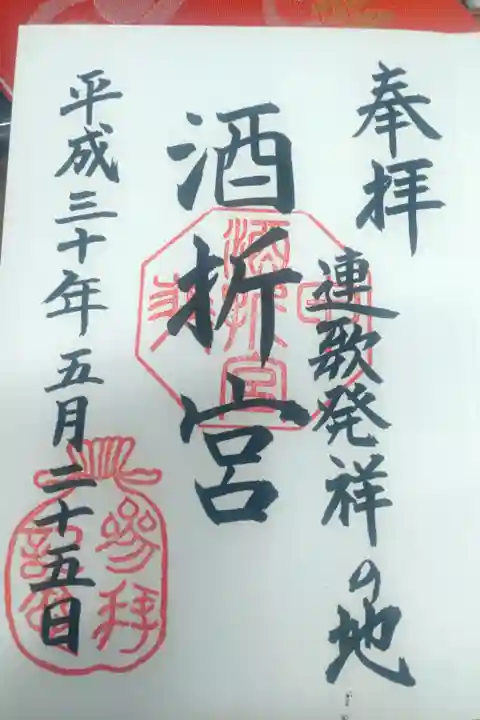 奉拝
連歌発祥の地
酒折宮
平成三十年五月二十五日
酒折宮
参拝